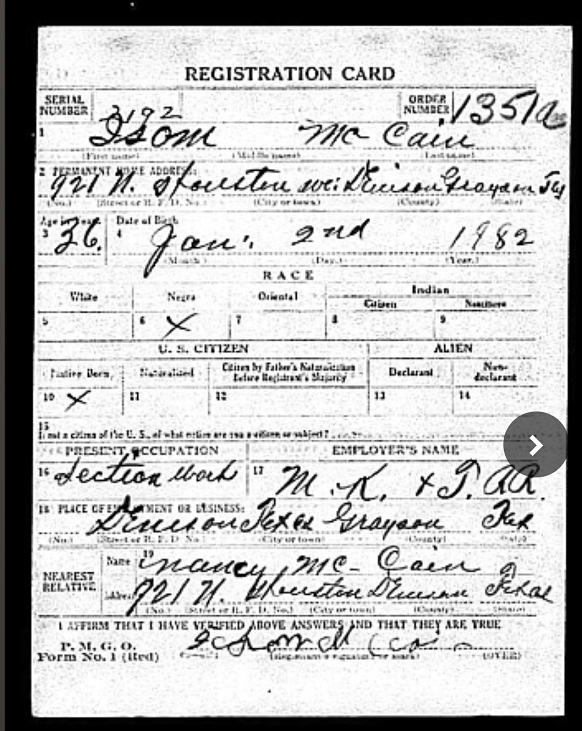 REGISTRATION CARD
SERIAL NUMBER 3192 ORDER NUMBER 1351a
1 Isom Mc Cain
(First name) (Middle name) (Last name)
2 PERMANENT HOME ADDRESS:
721 N. Houston Denison Grayson Tex
(No.) (Street or R. F. D. No.) (City or town) (County) (State)
Age in years Date of Birth
3 36 4 Jan. 2nd 1982
(Month) (Day) (Year)
RACE
White Negro Oriental Indian
Citizen Noncitizen
5 6 X 7 8 9
U. S. CITIZEN ALIEN
Native Born Naturalized Citizen by Father's Naturalization Before Registrant's Majority Declarant Non-declarant
10 X 11 12 13 14
15
If not a citizen of the U. S., of what nation are you a citizen or subject?
PRESENT OCCUPATION EMPLOYER'S NAME
16 Section Work 17 M. K. & T. RR.
18 PLACE OF EMPLOYMENT OR BUSINESS:
Denison Texas Grayson Tex
(No.) (Street or R. F. D. No.) (City or town) (County) (State)
NEAREST RELATIVE
Name 19 Nancy Mc-Cain
Address 721 N. Houston Denison Texas
(No.) (Street or R. F. D. No.) (City or town) (County) (State)
I AFFIRM THAT I HAVE VERIFIED ABOVE ANSWERS AND THAT THEY ARE TRUE
P. M. G. O.
Form No. 1 (Red) (Registrant's signature or mark) (OVER)